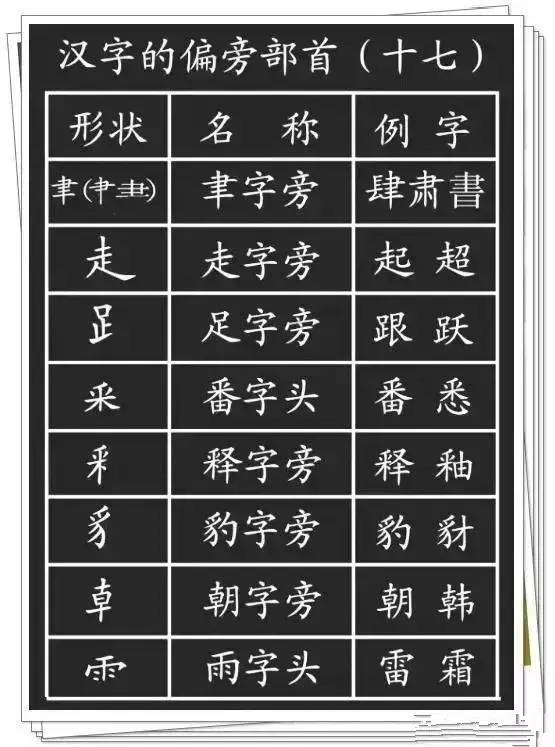 汉字的偏旁部首（十七）
形状 名称 例字
聿(肀⺻) 聿字旁 肆肃書
走 走字旁 起 超
𧾷 足字旁 跟 跃
釆 番字头 番 悉
釆 释字旁 释 釉
豸 豹字旁 豹 豺
龺 朝字旁 朝 韩
⻗ 雨字头 雷 霜